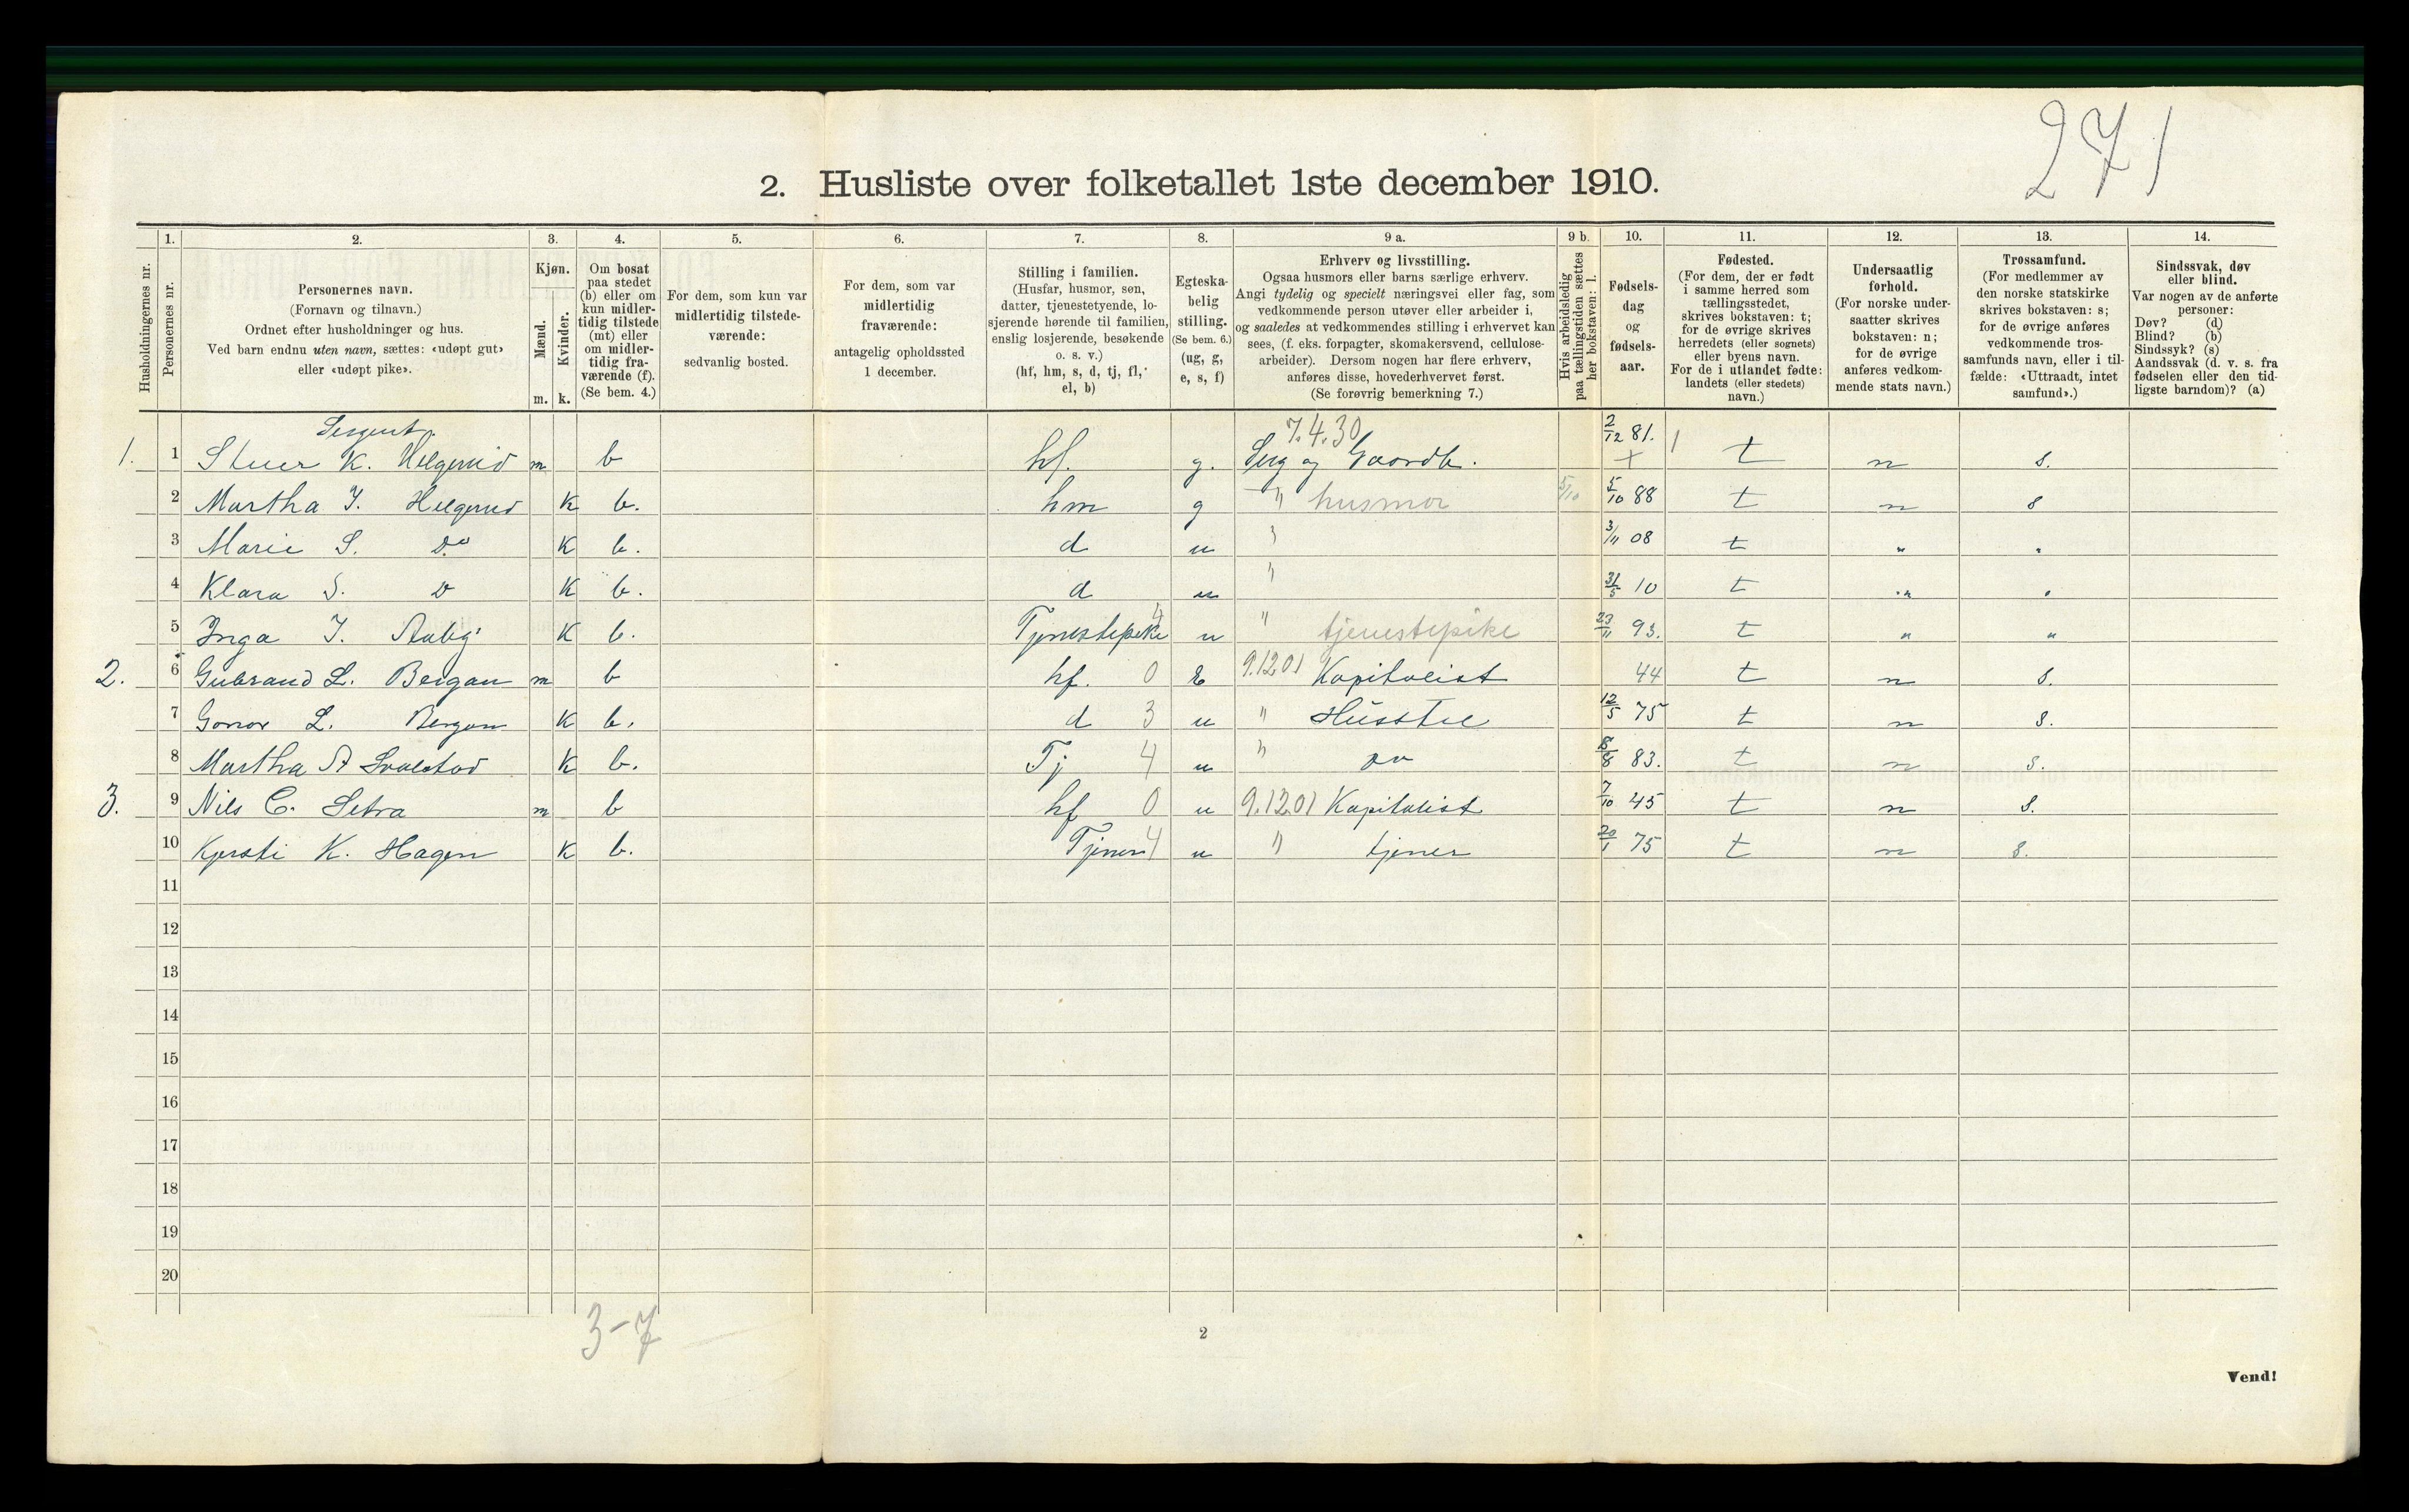 271
2. Husliste over folketallet 1ste december 1910.
Husholdningernes nr.
1. Personernes nr.
2. Personernes navn.
(Fornavn og tilnavn.)
Ordnet efter husholdninger og hus.
Ved barn endnu uten navn, sættes: «udøpt gut»
eller «udøpt pike».
3. Kjøn.
Mænd. m.
Kvinder. k.
4. Om bosat
paa stedet
(b) eller om
kun midler-
tidig tilstede
(mt) eller
om midler-
tidig fra-
værende (f).
(Se bem. 4.)
5. For dem, som kun var
midlertidig tilstede-
værende:
sedvanlig bosted.
6. For dem, som var
midlertidig
fraværende:
antagelig opholdssted
1 december.
7. Stilling i familien.
(Husfar, husmor, søn,
datter, tjenestetyende, lo-
sjerende hørende til familien,
enslig losjerende, besøkende
o. s. v.)
(hf, hm, s, d, tj, fl,
el, b)
8. Egteska-
belig
stilling.
(Se bem. 6.)
(ug, g,
e, s, f)
9 a. Erhverv og livsstilling.
Ogsaa husmors eller barns særlige erhverv.
Angi tydelig og specielt næringsvei eller fag, som
vedkommende person utøver eller arbeider i,
og saaledes at vedkommendes stilling i erhvervet kan
sees, (f. eks. forpagter, skomakersvend, cellulose-
arbeider). Dersom nogen har flere erhverv,
anføres disse, hovederhvervet først.
(Se forøvrig bemerkning 7.)
9 b. Hvis arbeidsledig
paa tællingstiden sættes
her bokstaven: l.
10. Fødsels-
dag
og
fødsels-
aar.
11. Fødested.
(For dem, der er født
i samme herred som
tællingsstedet,
skrives bokstaven: t;
for de øvrige skrives
herredets (eller sognets)
eller byens navn.
For de i utlandet fødte:
landets (eller stedets)
navn.)
12. Undersaatlig
forhold.
(For norske under-
saatter skrives
bokstaven: n;
for de øvrige
anføres vedkom-
mende stats navn.)
13. Trossamfund.
(For medlemmer av
den norske statskirke
skrives bokstaven: s;
for de øvrige anføres
vedkommende tros-
samfunds navn, eller i til-
fælde: «Uttraadt, intet
samfund».)
14. Sindssvak, døv
eller blind.
Var nogen av de anførte
personer:
Døv? (d)
Blind? (b)
Sindssyk? (s)
Aandssvak (d. v. s. fra
fødselen eller den tid-
ligste barndom)? (a)
Sergent. 7.4.30
1. 1 K. Helgerud m b hf. g. Serg og Gaardb. 2/12 81. t n s.
2 Martha I. Helgerud K b. hm g " husmor 5/10 5/10 88 t n s
3 Marie S. Do K b. d u " 3/11 08 t " "
4 Klara S. D K b. d u " 31/5 10 t " "
5 Inga I. K b. Tjenestepike 4 u " tjenestepike 23/11 93. t " "
2. 6 Gubrand L. Bergan m b hf. 0 E 9.1201 Kapitalist 44 t n s.
7 L. Bergan K b. d 3 u " Husstel 12/5 75 t n s.
8 Martha K b. Tj 4 u " 83. t n s.
3. 9 Nils C. Setra m b hf 0 u 9.1201 Kapitalist 7/10 45 t n s.
10 Kjersti K. Hagen K b. Tjener 4 u " tjener 20/1 75 t n s.
11
12
13
14
15
16
17
18
19
20
3-7
2
Vend!